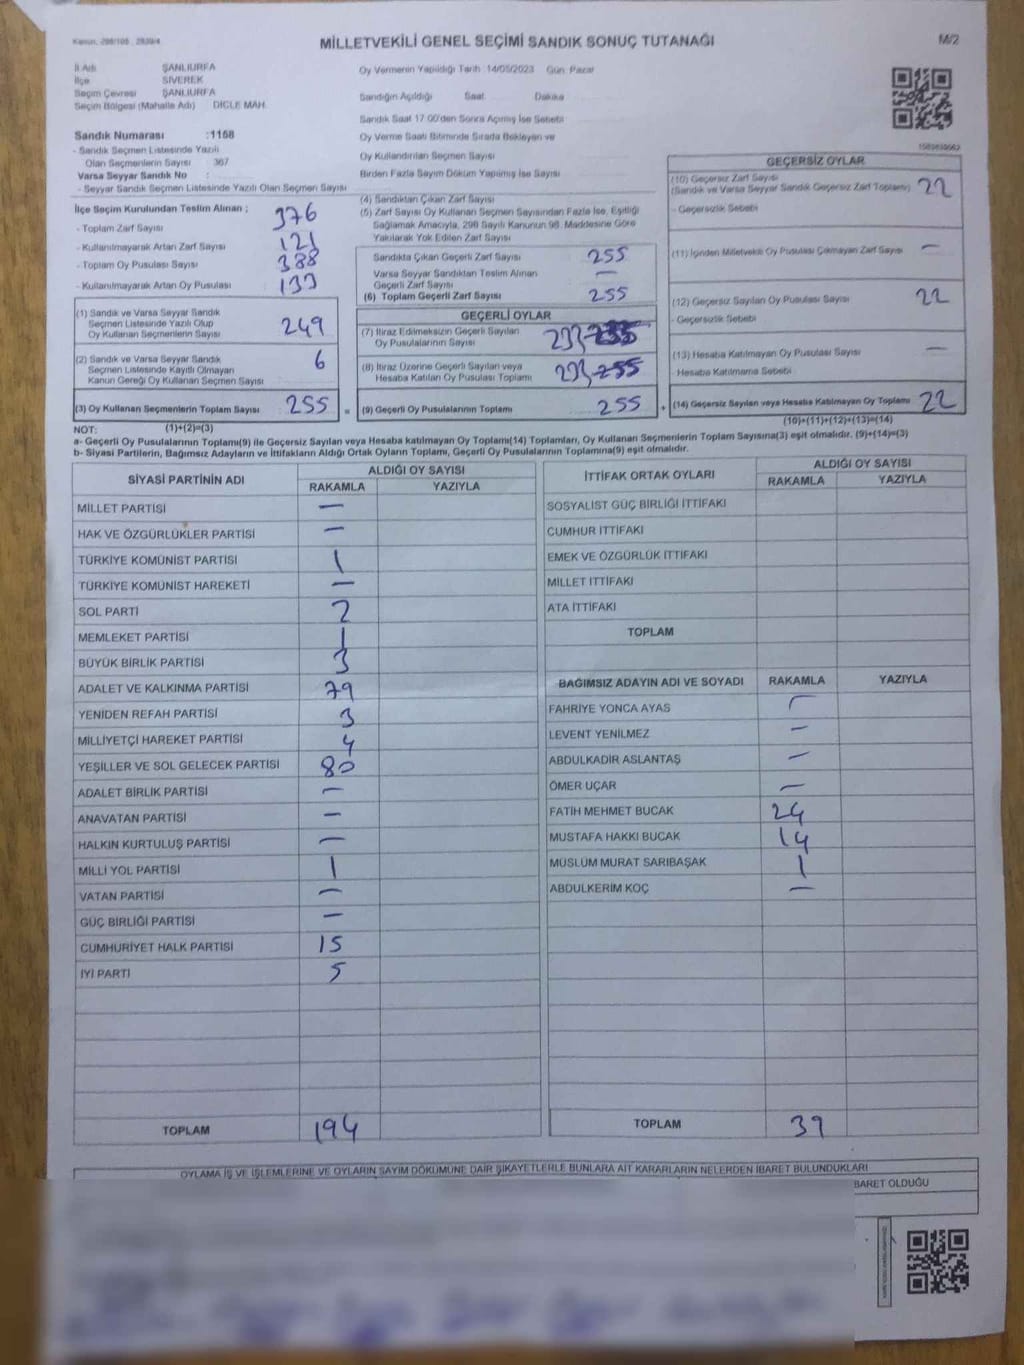 Kanun, 298/105 , 2839/4
MİLLETVEKİLİ GENEL SEÇİMİ SANDIK SONUÇ TUTANAĞI
M/2
İl Adı ŞANLIURFA
İlçe SİVEREK
Seçim Çevresi ŞANLIURFA
Seçim Bölgesi (Mahalle Adı) DİCLE MAH.
Sandık Numarası :1168
- Sandık Seçmen Listesinde Yazılı
Olan Seçmenlerin Sayısı 367
Varsa Seyyar Sandık No :
- Seyyar Sandık Seçmen Listesinde Yazılı Olan Seçmen Sayısı
Oy Vermenin Yapıldığı Tarih :14/05/2023 Gün: Pazar
Sandığın Açıldığı Saat Dakika
Sandık Saat 17.00'den Sonra Açımış İse Sebebi
Oy Verme Saati Bitiminde Sırada Bekleyen ve
Oy Kullandırılan Seçmen Sayısı
Birden Fazla Sayım Döküm Yapılmış İse Sayısı
İlçe Seçim Kurulundan Teslim Alınan ;
- Toplam Zarf Sayısı 376
- Kullanılmayarak Artan Zarf Sayısı 121
- Toplam Oy Pusulası Sayısı 388
- Kullanılmayarak Artan Oy Pusulası 133
(1) Sandık ve Varsa Seyyar Sandık
Seçmen Listesinde Yazılı Olup
Oy Kullanan Seçmenlerin Sayısı 249
(2) Sandık ve Varsa Seyyar Sandık
Seçmen Listesinde Kayıtlı Olmayan
Kanun Gereği Oy Kullanan Seçmen Sayısı 6
(3) Oy Kullanan Seçmenlerin Toplam Sayısı 255 =
(4) Sandıktan Çıkan Zarf Sayısı
(5) Zarf Sayısı Oy Kullanan Seçmen Sayısından Fazla İse, Eşitliği
Sağlamak Amacıyla, 298 Sayılı Kanunun 98. Maddesine Göre
Yakılarak Yok Edilen Zarf Sayısı
Sandıkta Çıkan Geçerli Zarf Sayısı 255
Varsa Seyyar Sandıktan Teslim Alınan
Geçerli Zarf Sayısı —
(6) Toplam Geçerli Zarf Sayısı 255
GEÇERLİ OYLAR
(7) İtiraz Edilmeksizin Geçerli Sayılan
Oy Pusulalarının Sayısı 233 255
(8) İtiraz Üzerine Geçerli Sayılan veya
Hesaba Katılan Oy Pusulası Toplamı 233 255
(9) Geçerli Oy Pusulalarının Toplamı 255 +
GEÇERSİZ OYLAR
(10) Geçersiz Zarf Sayısı
(Sandık ve Varsa Seyyar Sandık Geçersiz Zarf Toplamı) 22
- Geçersizlik Sebebi
(11) İçinden Milletvekili Oy Pusulası Çıkmayan Zarf Sayısı —
(12) Geçersiz Sayılan Oy Pusulası Sayısı 22
- Geçersizlik Sebebi
(13) Hesaba Katılmayan Oy Pusulası Sayısı —
- Hesaba Katılmama Sebebi
(14) Geçersiz Sayılan veya Hesaba Katılmayan Oy Toplamı 22
NOT: (1)+(2)=(3)
(10)+(11)+(12)+(13)=(14)
a- Geçerli Oy Pusulalarının Toplamı(9) ile Geçersiz Sayılan veya Hesaba katılmayan Oy Toplamı(14) Toplamları, Oy Kullanan Seçmenlerin Toplam Sayısına(3) eşit olmalıdır. (9)+(14)=(3)
b- Siyasi Partilerin, Bağımsız Adayların ve İttifakların Aldığı Ortak Oyların Toplamı, Geçerli Oy Pusulalarının Toplamına(9) eşit olmalıdır.
SİYASİ PARTİNİN ADI ALDIĞI OY SAYISI
RAKAMLA YAZIYLA
MİLLET PARTİSİ —
HAK VE ÖZGÜRLÜKLER PARTİSİ —
TÜRKİYE KOMÜNİST PARTİSİ 1
TÜRKİYE KOMÜNİST HAREKETİ —
SOL PARTİ 2
MEMLEKET PARTİSİ 1
BÜYÜK BİRLİK PARTİSİ 3
ADALET VE KALKINMA PARTİSİ 79
YENİDEN REFAH PARTİSİ 3
MİLLİYETÇİ HAREKET PARTİSİ 4
YEŞİLLER VE SOL GELECEK PARTİSİ 80
ADALET BİRLİK PARTİSİ —
ANAVATAN PARTİSİ —
HALKIN KURTULUŞ PARTİSİ —
MİLLİ YOL PARTİSİ 1
VATAN PARTİSİ —
GÜÇ BİRLİĞİ PARTİSİ —
CUMHURİYET HALK PARTİSİ 15
İYİ PARTİ 5
TOPLAM 194
İTTİFAK ORTAK OYLARI ALDIĞI OY SAYISI
RAKAMLA YAZIYLA
SOSYALİST GÜÇ BİRLİĞİ İTTİFAKI
CUMHUR İTTİFAKI
EMEK VE ÖZGÜRLÜK İTTİFAKI
MİLLET İTTİFAKI
ATA İTTİFAKI
TOPLAM
BAĞIMSIZ ADAYIN ADI VE SOYADI RAKAMLA YAZIYLA
FAHRİYE YONCA AYAS —
LEVENT YENİLMEZ —
ABDULKADİR ASLANTAŞ —
ÖMER UÇAR —
FATİH MEHMET BUCAK 24
MUSTAFA HAKKI BUCAK 14
MÜSLÜM MURAT SARIBAŞAK 1
ABDULKERİM KOÇ —
TOPLAM 39
OYLAMA İŞ VE İŞLEMLERİNE VE OYLARIN SAYIM DÖKÜMÜNE DAİR ŞİKAYETLERLE BUNLARA AİT KARARLARIN NELERDEN İBARET BULUNDUKLARI
BARET OLDUĞU